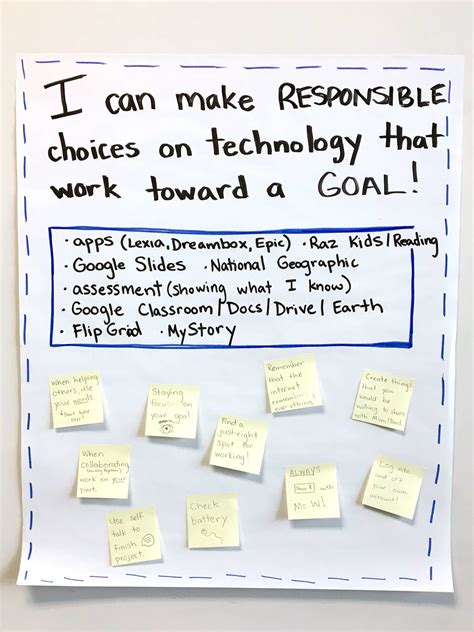 I can make RESPONSIBLE
choices on technology that
work toward a GOAL!
· apps (Lexia, Dreambox, Epic) · Raz Kids/Reading
· Google Slides · National Geographic
· assessment (showing what I know)
· Google Classroom/Docs/Drive/Earth
· FlipGrid · MyStory
When helping
others, use
your words.
Staying
focused on
your goal
Remember
that the
internet
remembers
everything!
Create things
that you
would be
willing to share
with Mom/Dad
Find a
just-right
spot for
working!
When
collaborating
work on your
part.
ALWAYS
with
Ms. W!
Log into
and off
your own
account!
Use self
talk to
finish
project.
Check
battery